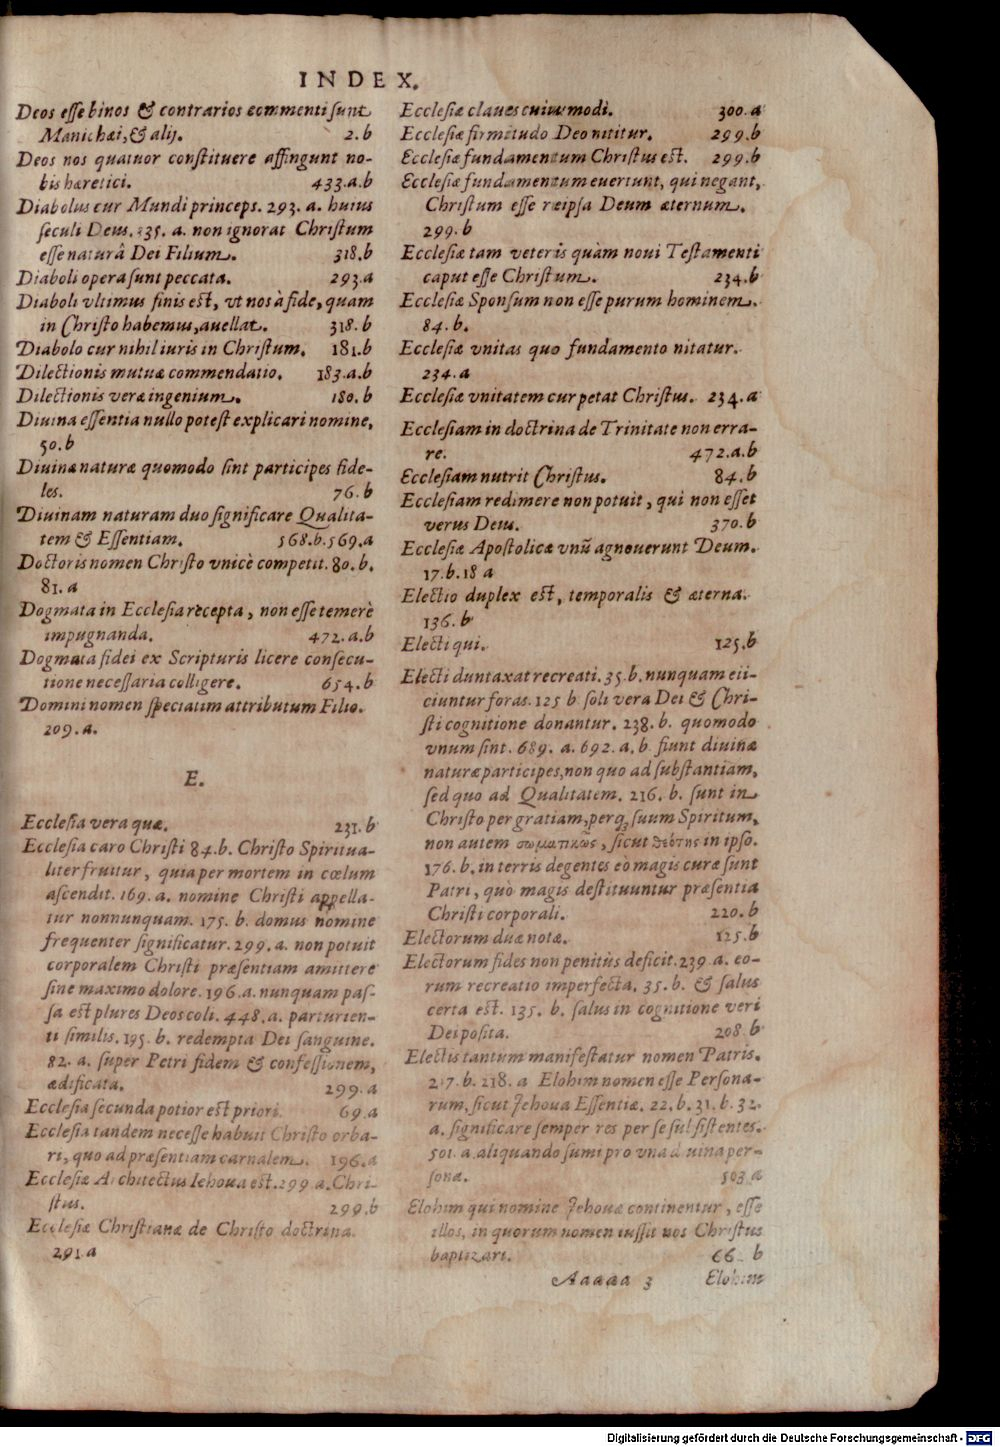 INDEX.
Deos esse binos & contrarios commenti sunt
Manichæi, & alij. 2.b
Deos nos quatuor constituere affingunt no-
bis hæretici. 433.a.b
Diabolus cur Mundi princeps. 293. a. huius
seculi Deus. 235. a. non ignorat Christum
esse naturâ Dei Filium. 318.b
Diaboli opera sunt peccata. 293.a
Diaboli vltimus finis est, vt nos à fide, quam
in Christo habemus, auellat. 318.b
Diabolo cur nihil iuris in Christum. 181.b
Dilectionis mutuæ commendatio. 183.a.b
Dilectionis veræ ingenium. 180.b
Diuina essentia nullo potest explicari nomine,
50.b
Diuinæ naturæ quomodo sint participes fide-
les. 76.b
Diuinam naturam duo significare Qualita-
tem & Essentiam. 568.b.569.a
Doctoris nomen Christo vnicè competit. 80.b.
81.a
Dogmata in Ecclesia recepta, non esse temerè
impugnanda. 472.a.b
Dogmata fidei ex Scripturis licere consecu-
tione necessaria colligere. 654.b
Domini nomen speciatim attributum Filio.
209.a.
E.
Ecclesia vera quæ. 231.b
Ecclesia caro Christi 84.b. Christo Spiritua-
liter fruitur, quia per mortem in cœlum
ascendit. 169.a. nomine Christi appella-
tur nonnunquam. 175. b. domus nomine
frequenter significatur. 299.a. non potuit
corporalem Christi præsentiam amittere
sine maximo dolore. 196.a. nunquam pas-
sa est plures Deos coli. 448.a. parturien-
ti similis. 195. b. redempta Dei sanguine.
82. a. super Petri fidem & confessionem,
ædificata. 299.a
Ecclesia secunda potior est priori. 69.a
Ecclesia tandem necesse habuit Christo orba-
ri, quo ad præsentiam carnalem. 196.a
Ecclesiæ Architectus Iehoua est. 299 a. Chri-
stus. 299.b
Ecclesiæ Christianæ de Christo doctrina.
291.a
Ecclesiæ claues cuiusmodi. 300.a
Ecclesiæ firmitudo Deo nititur. 299.b
Ecclesiæ fundamentum Christus est. 299.b
Ecclesiæ fundamentum euertunt, qui negant,
Christum esse reipsa Deum æternum.
299.b
Ecclesiæ tam veteris quàm noui Testamenti
caput esse Christum. 234.b
Ecclesiæ Sponsum non esse purum hominem.
84.b.
Ecclesiæ vnitas quo fundamento nitatur.
234.a
Ecclesiæ vnitatem cur petat Christus. 234.a
Ecclesiam in doctrina de Trinitate non erra-
re. 472.a.b
Ecclesiam nutrit Christus. 84.b
Ecclesiam redimere non potuit, qui non esset
verus Deus. 370.b
Ecclesiæ Apostolicæ vnũ agnouerunt Deum.
17.b.18 a
Electio duplex est, temporalis & æterna.
136.b
Electi qui. 125.b
Electi duntaxat recreati. 35.b. nunquam eii-
ciuntur foras. 125 b. soli vera Dei & Chri-
sti cognitione donantur. 238. b. quomodo
vnum sint. 689. a. 692.a.b. fiunt diuinæ
naturæ participes, non quo ad substantiam,
sed quo ad Qualitatem. 216. b. sunt in
Christo per gratiam, perq́ suum Spiritum,
non autem σωματικῶς, sicut θεότης in ipso.
176.b. in terris degentes eò magis curæ sunt
Patri, quò magis destituuntur præsentia
Christi corporali. 220.b
Electorum duæ notæ. 125.b
Electorum fides non penitùs deficit. 239.a. eo-
rum recreatio imperfecta. 35.b. & salus
certa est. 135. b. salus in cognitione veri
Dei posita. 208.b
Electis tantum manifestatur nomen Patris.
217.b. 218.a Elohim nomen esse Persona-
rum, sicut Jehoua Essentiæ. 22.b.31.b.32.
a. significare semper res per se subsistentes.
501.a. aliquando sumi pro vna diuina per-
sona. 503.a
Elohim qui nomine Jehouæ continentur, esse
illos, in quorum nomen iussit nos Christus
baptizari. 66. b
Aaaaa 3 Elohim
Digitalisierung gefördert durch die Deutsche Forschungsgemeinschaft - DFG